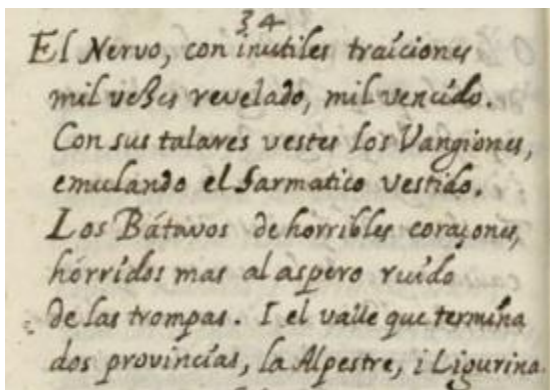 34
El Nervo, con inutiles traiciones
mil veßes revelado, mil vencido.
Con sus talares vestes los Vangiones,
emulando el Sarmatico vestido.
Los Bátavos de horribles coraçones,
hórridos mas al aspero ruido
de las trompas. I el valle que termina
dos provincias, la Alpestre, i Ligurina.